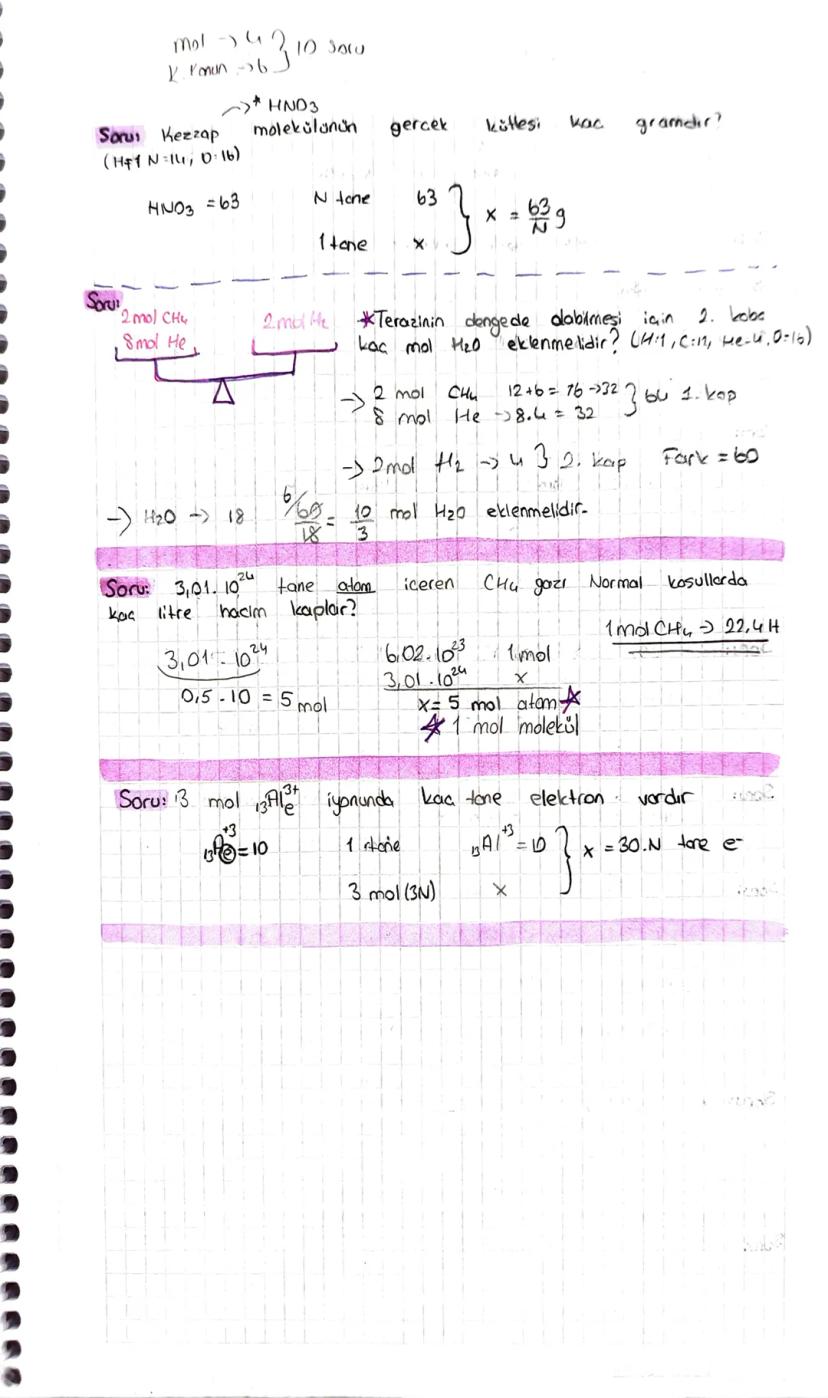 mol → 4 } 10 soru
K. Kanun → 6
→* HNO3
Soru: Kezzap molekülünün gerçek kütlesi kaç gramdır?
(H=1 N=14, O:16)
HNO3 = 63 N tane 63 } x = 63/N g
1 tane x
Soru:
2 mol CH4 2 mol He *Terazinin dengede olabilmesi için 2. kaba
8 mol He kaç mol H2O eklenmelidir? (H:1, C:12, He-4, O:16)
→ 2 mol CH4 12+6 = 16 → 32 } 64 1. kap
8 mol He → 8.4 = 32
→ 2 mol H2 → 4 } 2. kap Fark = 60
→ H2O → 18 60/18 = 10/3 mol H2O eklenmelidir.
Soru: 3,01.10^24 tane atom içeren CH4 gazı Normal koşullarda
kaç litre hacim kaplar?
1 mol CH4 → 22,4 H
3,01.10^24 6,02.10^23 1 mol
3,01.10^24 x
0,5.10 = 5 mol x = 5 mol atom *
* 1 mol molekül
Soru: 3 mol 13Al3+ iyonunda kaç tane elektron vardır
= 10 1 tane 13Al+3 = 10 } x = 30.N tane e-
3 mol (3N) x